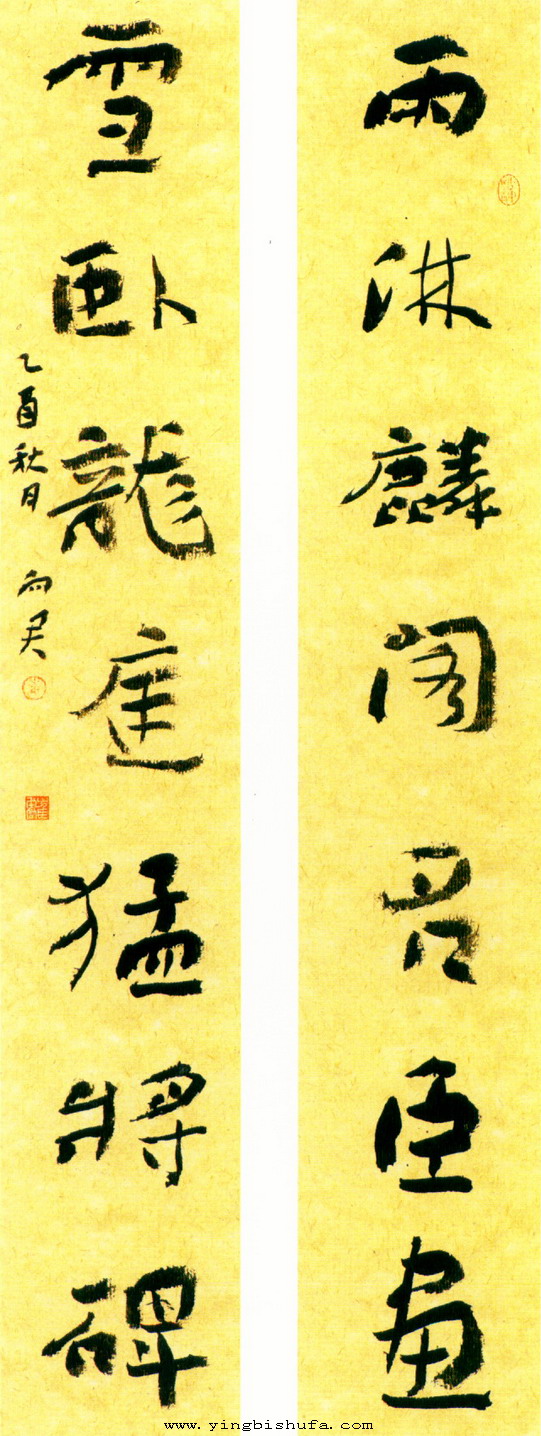 雨淋麟閣名臣畫
雪卧龍庭猛將碑
乙酉秋月 向君
www.yingbishufa.com